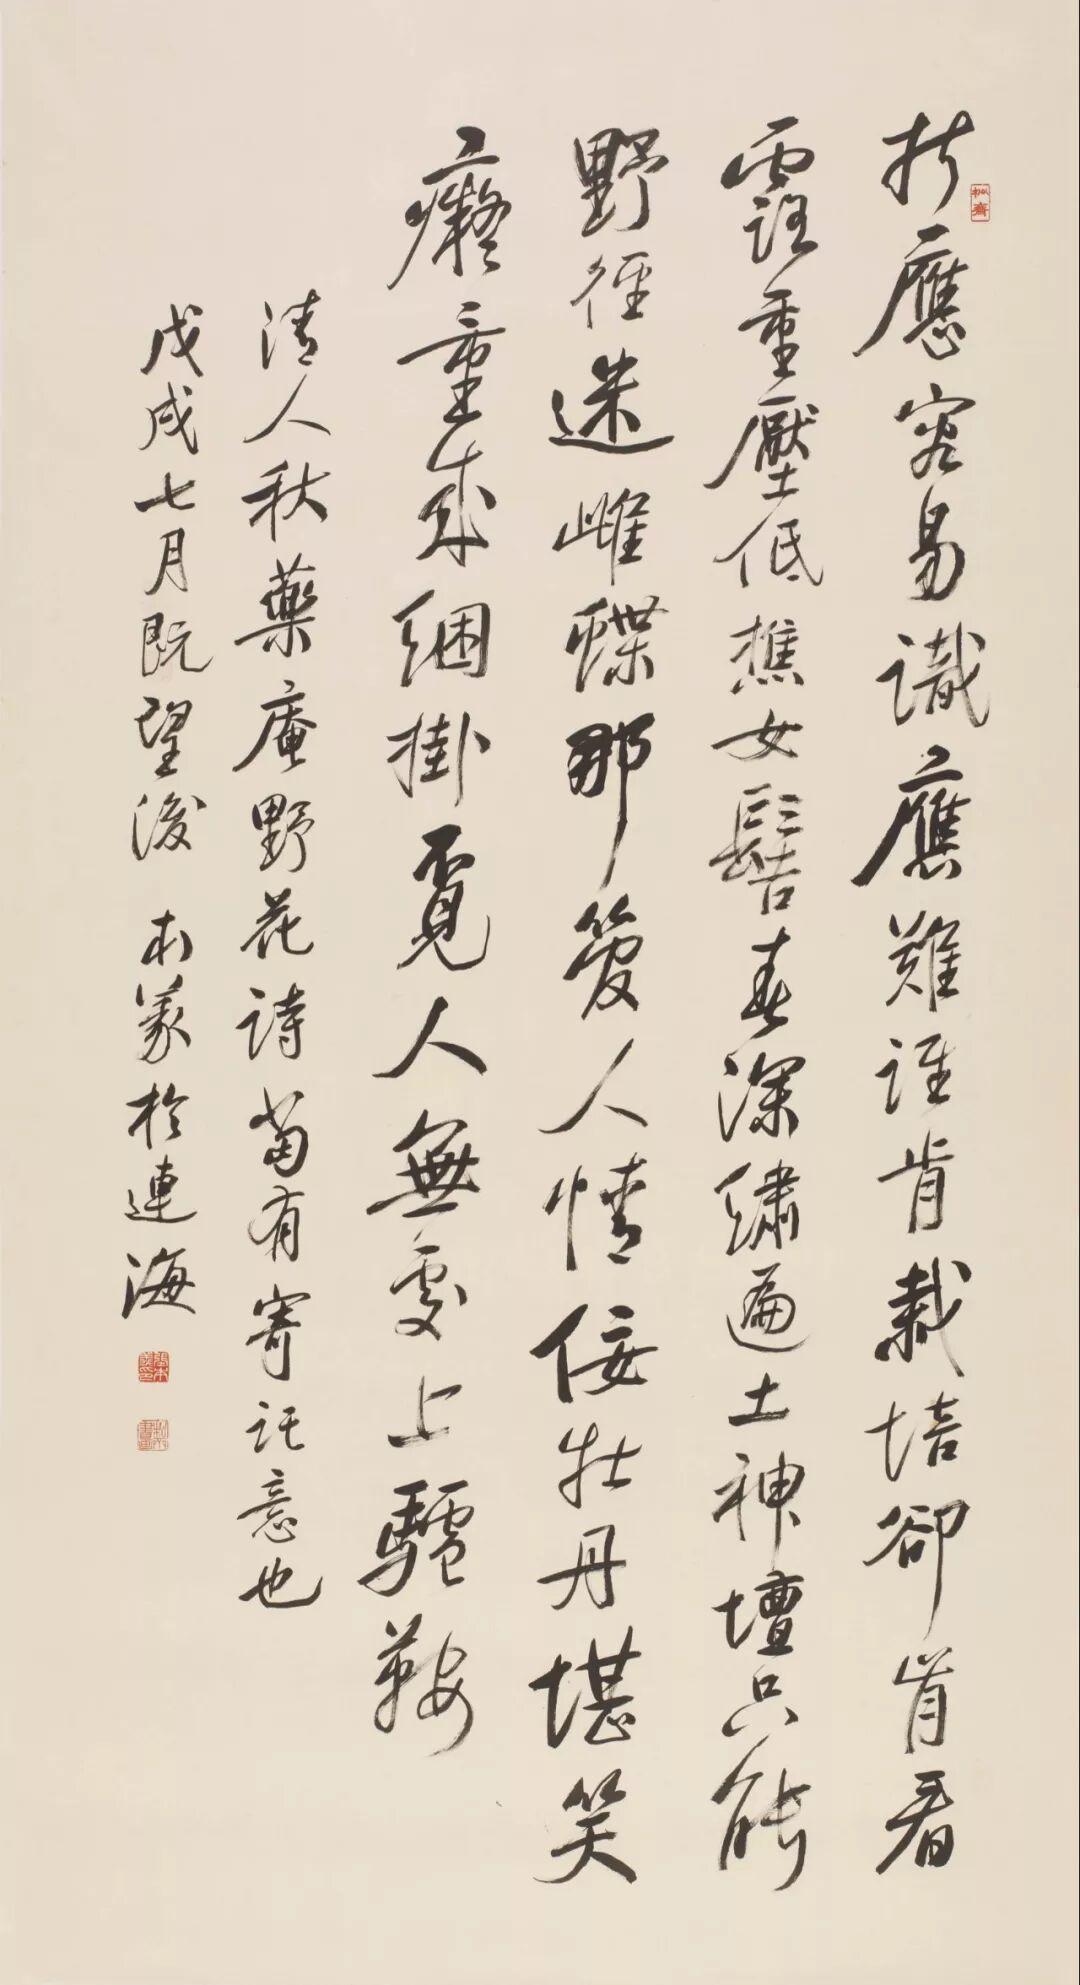 折應容易識應難誰肯栽培卻肯看
露重壓低樵女髻春深繡遍土神壇只能
野徑迷雌蝶那管人情佞牡丹堪笑
癡童成綑掛覓人無處上驢鞍
清人秋藥庵野花詩當有寄託意也
戊戌七月既望後 本義於連海